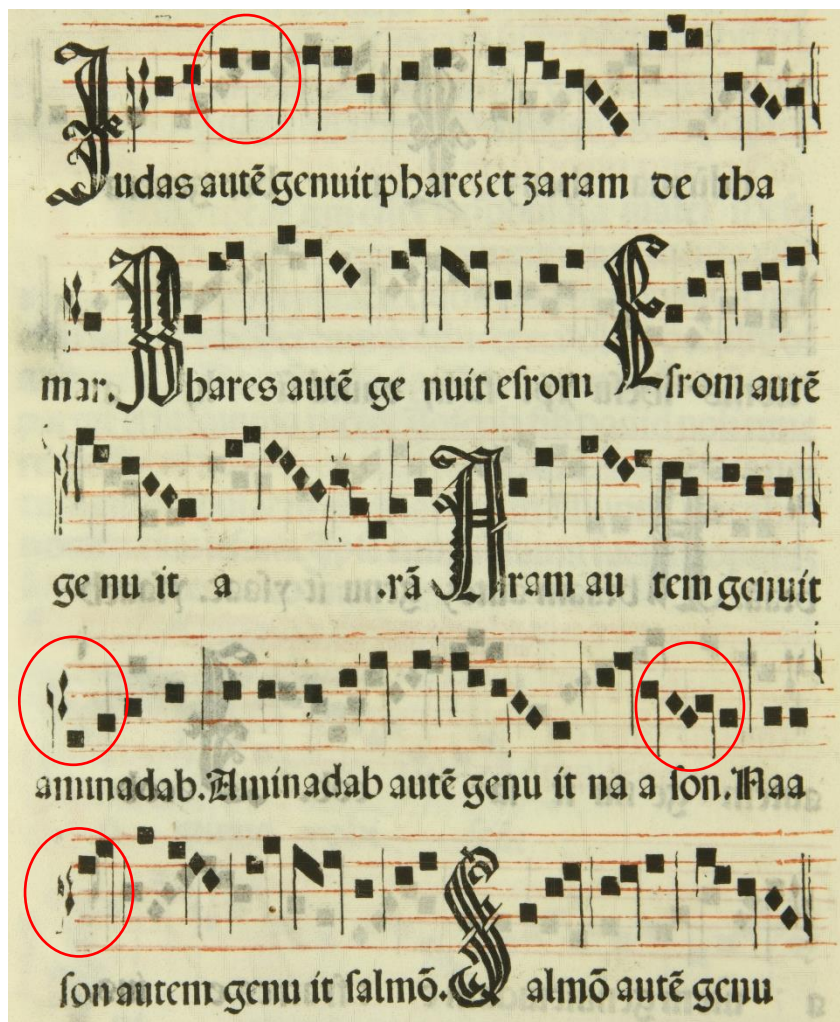 Judas autē genuit phares et zaram de tha
mar. Phares autē ge nuit esrom Esrom autē
ge nu it a .rā Aram au tem genuit
aminadab. Aminadab autē genu it na a son. Naa
son autem genu it salmō. Salmō autē genu